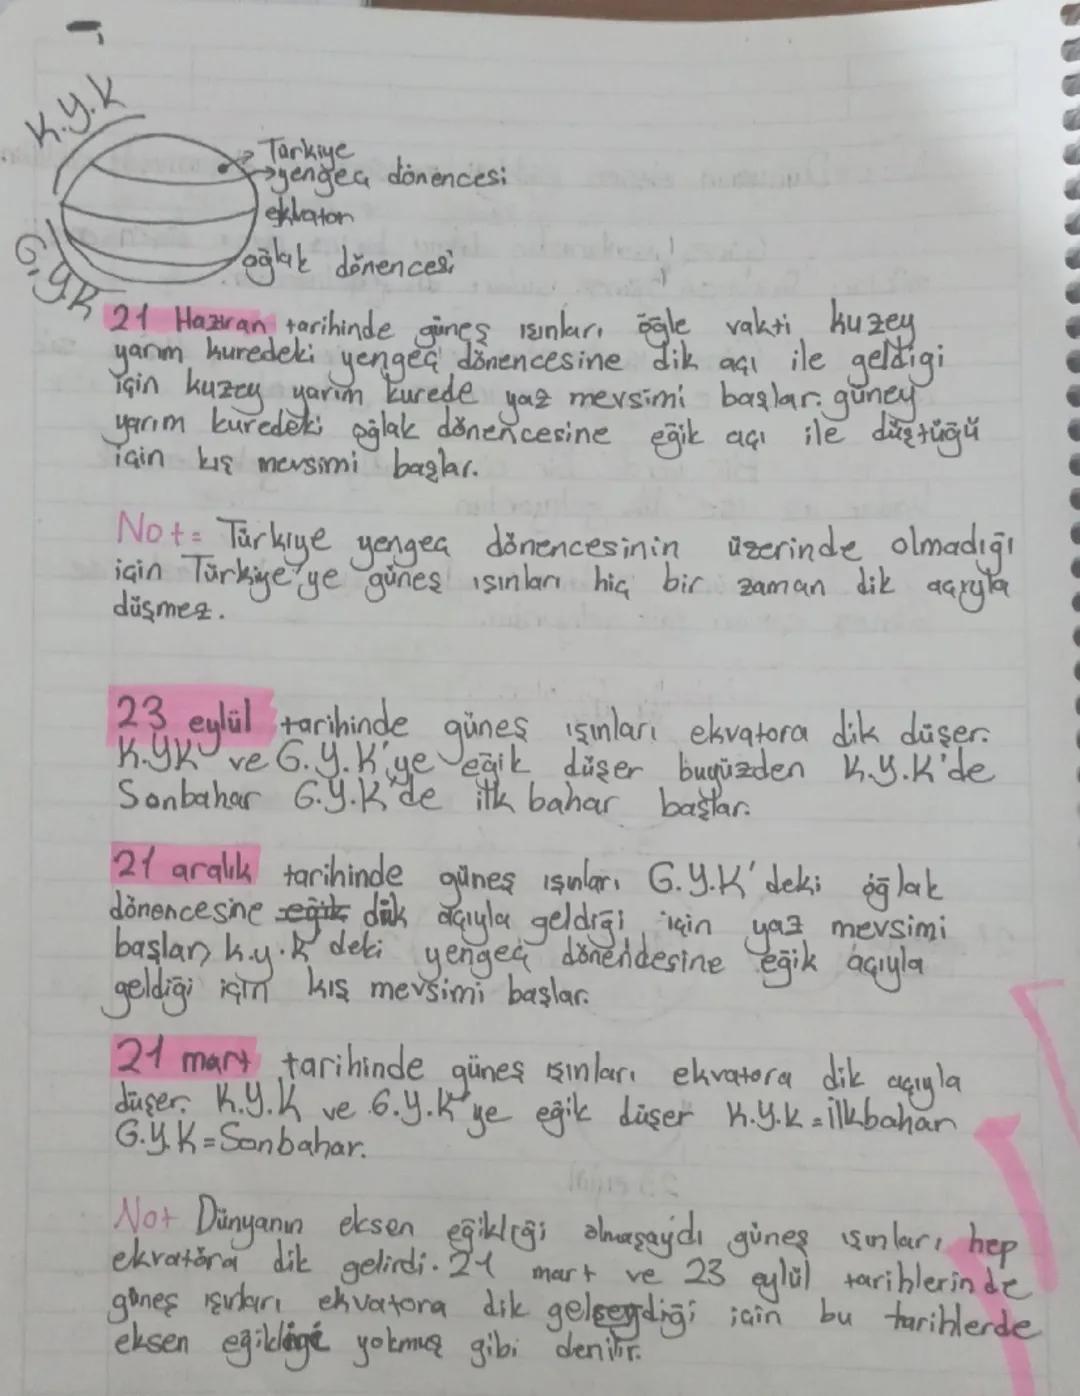 K.Y.K
G.Y.K
Türkiye
yengeç dönencesi
ekvator
oğlak dönencesi
21 Haziran tarihinde güneş ışınları öğle vakti kuzey
yarım küredeki yengeç dönencesine dik açı ile geldigi
için kuzey yarım kürede yaz mevsimi başlar. güney
yarım küredeki oğlak dönencesine eğik açı ile düştüğü
için kış mevsimi başlar.
Not= Türkiye yengeç dönencesinin üzerinde olmadığı
için Türkiye'ye güneş ışınları hiç bir zaman dik açıyla
düşmez.
23 eylül tarihinde güneş ışınları ekvatora dik düşer.
K.YK ve G.Y.K'ye eğik düşer buyüzden K.Y.K'de
Sonbahar G.Y.K'de ilk bahar başlar.
21 aralık tarihinde güneş ışınları G.Y.K'deki oğlak
dönencesine eğik dik açıyla geldiği için yaz mevsimi
başlar, k.y.k'deki yengeç dönendesine eğik açıyla
geldiği için kış mevsimi başlar.
21 mart tarihinde güneş ışınları ekvatora dik açıyla
düşer. K.Y.K ve G.Y.K'ye eğik düşer K.Y.K=İlkbahar
G.Y.K=Sonbahar.
Not Dünyanın eksen eğikliği olmasaydı güneş ışınları hep
ekvatöra dik gelirdi. 21 mart ve 23 eylül tarihlerinde
güneş ışınları ekvatora dik için bu tarihlerde
eksen eğikliği yokmuş gibi denilir.